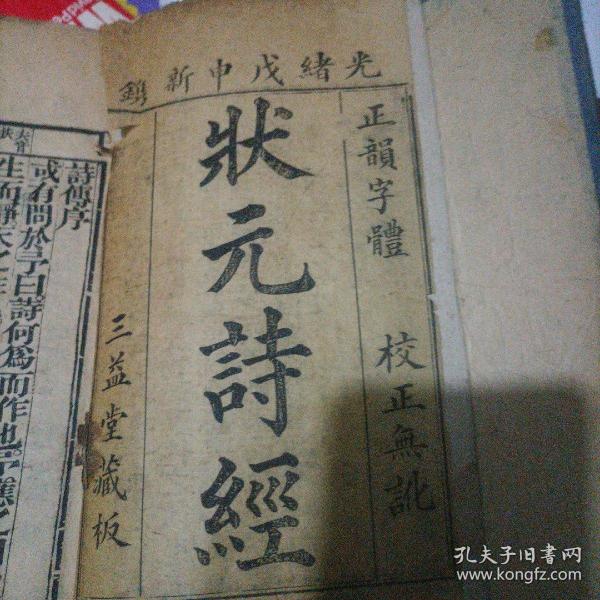 光緒戊申新鐫
正韻字體 校正無訛
狀元詩經
三益堂藏板
詩傳序
或有問於予曰詩何爲而作也予應之曰
生而靜天之性
孔夫子旧书网
www.kongfz.com